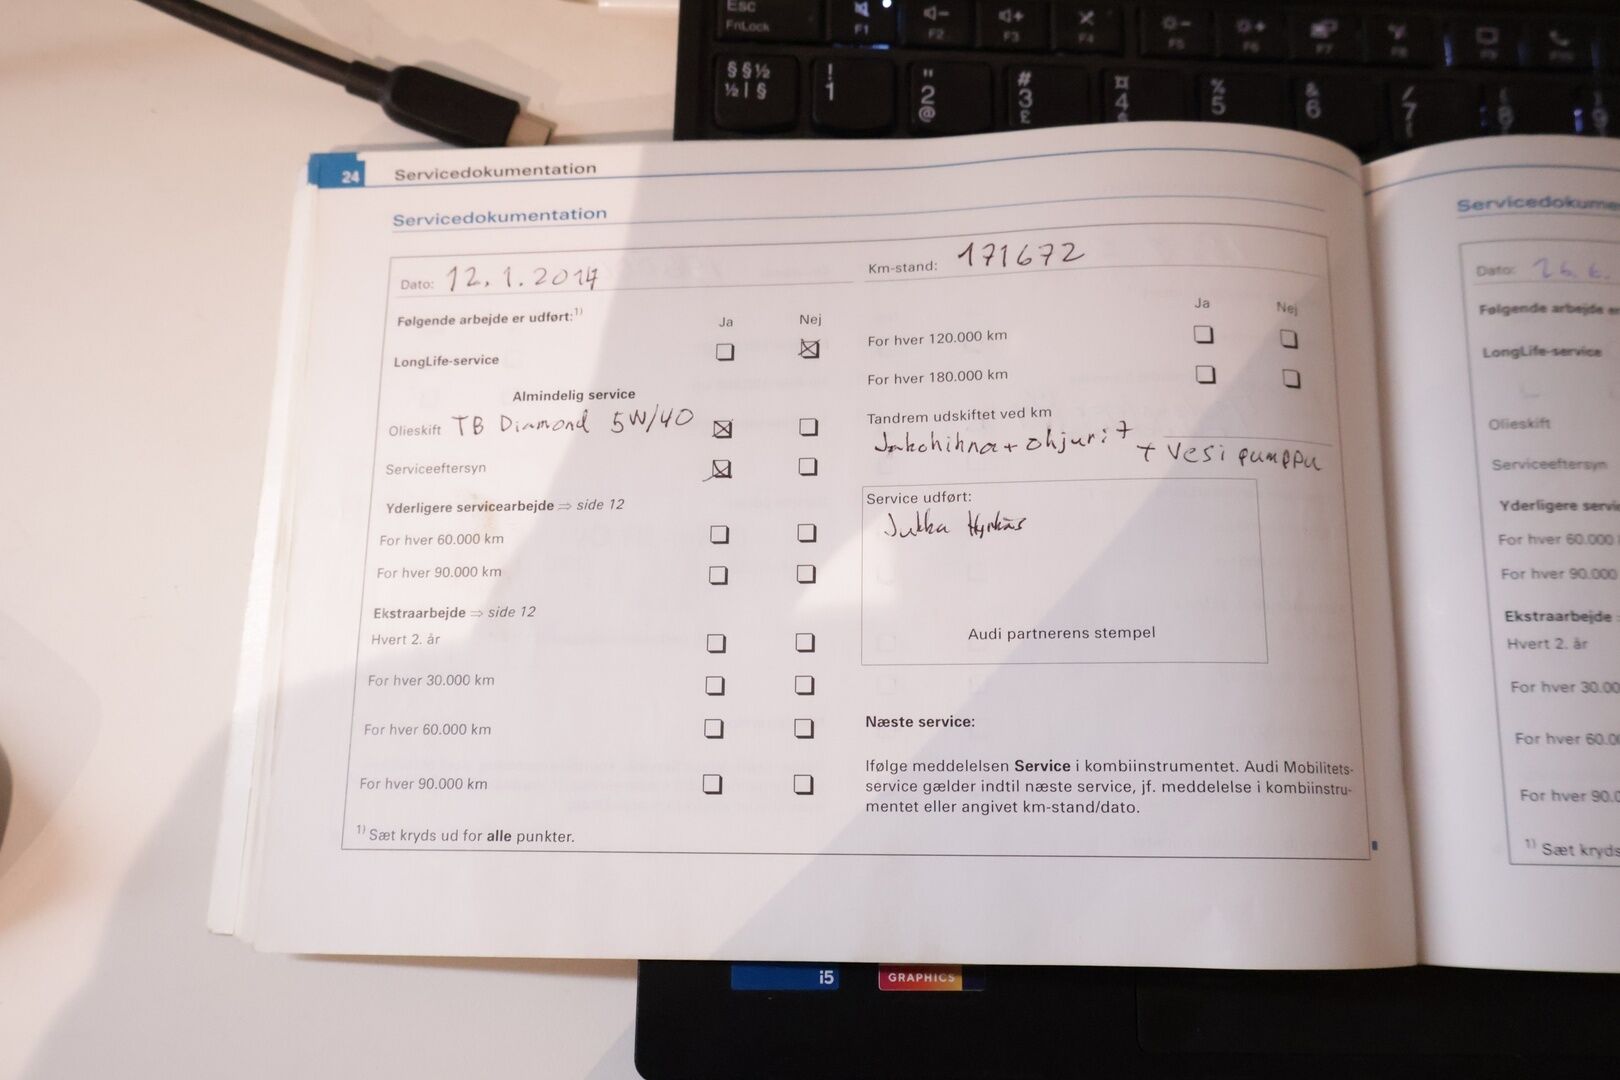 Esc
FnLock
F1
F2
F3
F4
F5
F6
F7
F8
§ § ½
½ | §
!
1
"
2
@
#
3
£
¤
4
%
5
&
6
/
7
24 Servicedokumentation
Servicedokumentation
Dato: 12.1.2014
Km-stand: 171672
Følgende arbejde er udført:1)
Ja Nej
LongLife-service
Almindelig service
Olieskift TB Diamond 5W/40
Serviceeftersyn
Yderligere servicearbejde ⇒ side 12
For hver 60.000 km
For hver 90.000 km
Ekstraarbejde ⇒ side 12
Hvert 2. år
For hver 30.000 km
For hver 60.000 km
For hver 90.000 km
1) Sæt kryds ud for alle punkter.
Ja Nej
For hver 120.000 km
For hver 180.000 km
Tandrem udskiftet ved km
Jakohihna + ohjurit
+ Vesipumppu
Service udført:
Jukka
Audi partnerens stempel
Næste service:
Ifølge meddelelsen Service i kombiinstrumentet. Audi Mobilitets-
service gælder indtil næste service, jf. meddelelse i kombiinstru-
mentet eller angivet km-stand/dato.
Servicedokume
Dato: 26.6.
Følgende arbejde er
LongLife-service
Olieskift
Serviceeftersyn
Yderligere servic
For hver 60.000
For hver 90.000
Ekstraarbejde
Hvert 2. år
For hver 30.00
For hver 60.00
For hver 90.0
1) Sæt kryds
i5
GRAPHICS